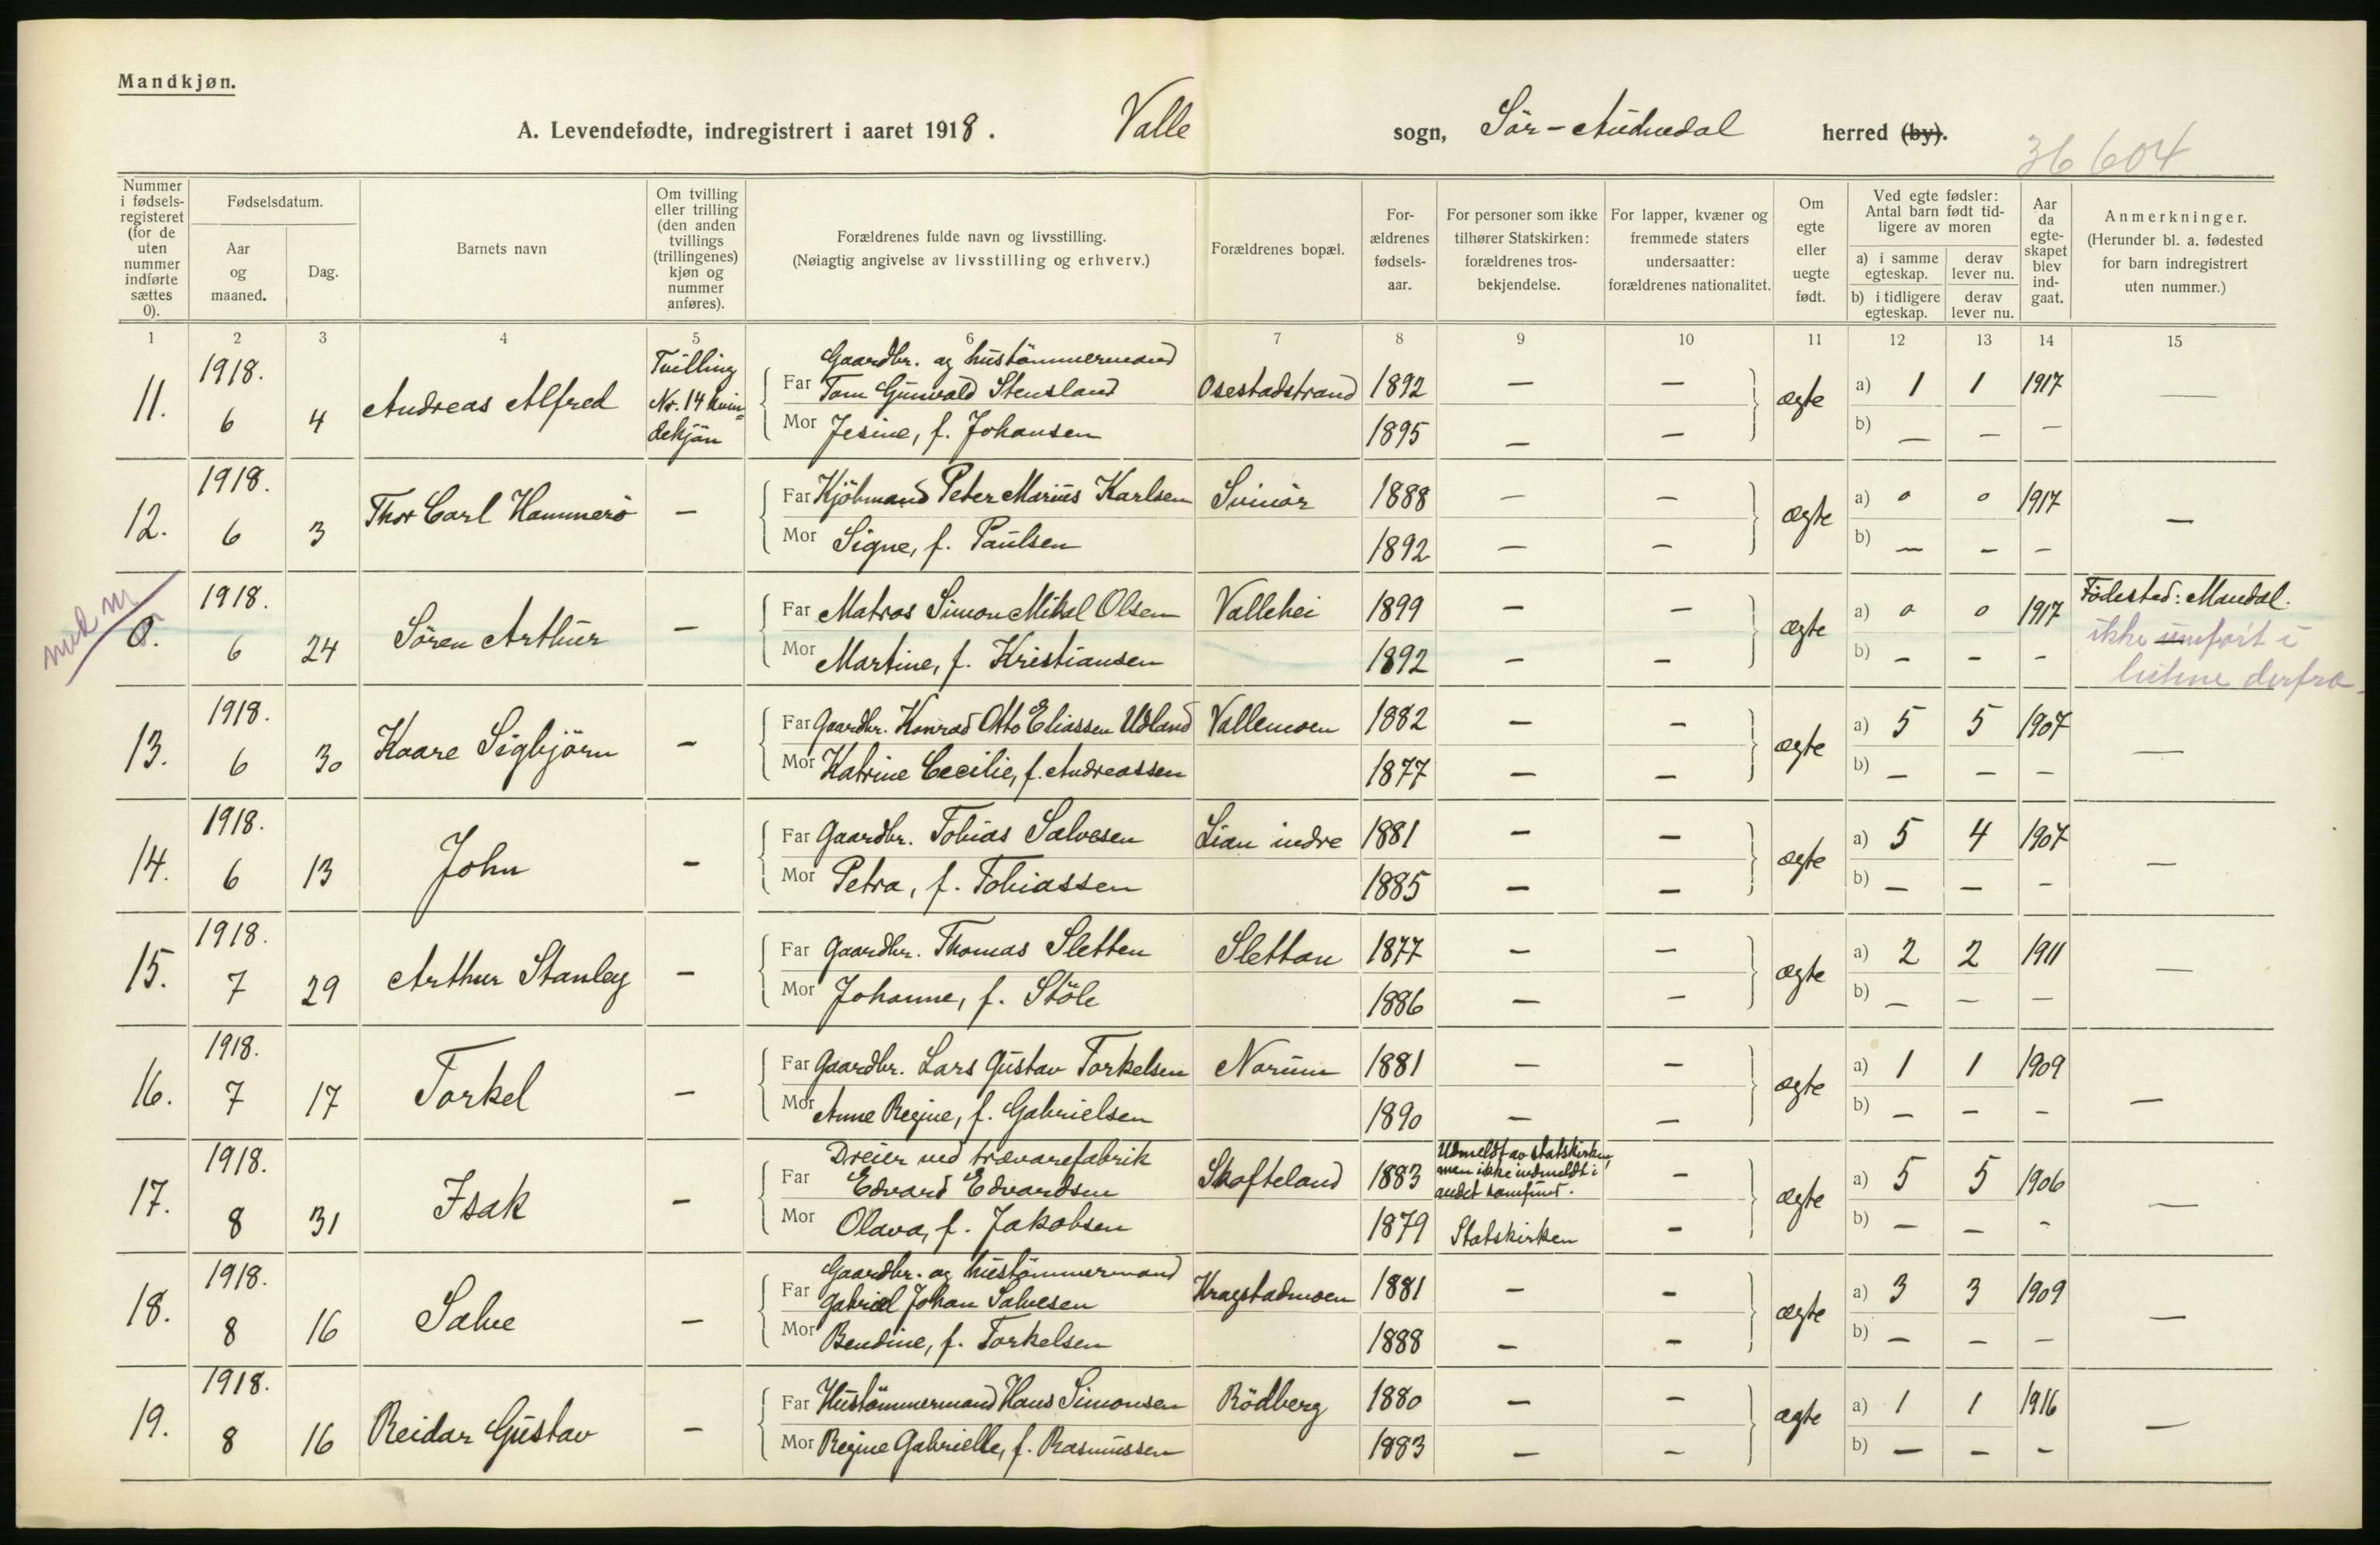 Mandkjøn.
A. Levendefødte, indregistrert i aaret 1918. Valle sogn, Sör-Audnedal herred (by).
36 604
Nummer i fødsels-registeret (for de uten nummer indførte sættes 0).
Fødselsdatum.
Aar og maaned.
Dag.
Barnets navn
Om tvilling eller trilling (den anden tvillings (trillingenes) kjøn og nummer anføres).
Forældrenes fulde navn og livsstilling.
(Nøiagtig angivelse av livsstilling og erhverv.)
Forældrenes bopæl.
For-ældrenes fødsels-aar.
For personer som ikke tilhører Statskirken: forældrenes tros-bekjendelse.
For lapper, kvæner og fremmede staters undersaatter: forældrenes nationalitet.
Om egte eller uegte født.
Ved egte fødsler: Antal barn født tid-ligere av moren
a) i samme egteskap.
derav lever nu.
b) i tidligere egteskap.
derav lever nu.
Aar da egte-skapet blev ind-gaat.
Anmerkninger.
(Herunder bl. a. fødested for barn indregistrert uten nummer.)
1 2 3 4 5 6 7 8 9 10 11 12 13 14 15
11. 1918. 6 4 Andreas Alfred Tvilling Nr. 14 kvin=dekjön
Gaardbr. og hustömmermand
Far Tom Gunvald Stensland Osestadstrand 1892 — — ægte a) 1 1 1917 —
Mor Jesine, f. Johansen 1895 — — b) — — —
12. 1918. 6 3 Thor Carl Hammerö —
Far Kjöbmand Peter Marius Karlsen Svinör 1888 — — ægte a) 0 0 1917 —
Mor Signe, f. Paulsen 1892 — — b) — — —
0. 1918. 6 24 Sören Arthur —
Far Matros Simon Mikal Olsen Vallehei 1899 — — ægte a) 0 0 1917 Födested: Mandal.
Mor Martine, f. Kristiansen 1892 — — b) — — — ikke
derfra
13. 1918. 6 30 Kaare Sigbjörn —
Far Gaardbr. Konrad Otto Eliassen Udland Vallemoen 1882 — — ægte a) 5 5 1907 —
Mor Katrine Cecilie, f. Andreassen 1877 — — b) — — —
14. 1918. 6 13 John —
Far Gaardbr. Tobias Salvesen Lian indre 1881 — — ægte a) 5 4 1907 —
Mor Petra, f. Tobiassen 1885 — — b) — — —
15. 1918. 7 29 Arthur Stanley —
Far Gaardbr. Thomas Sletten Slettan 1877 — — ægte a) 2 2 1911 —
Mor Johanne, f. Stöle 1886 — — b) — — —
16. 1918. 7 17 Torkel —
Far Gaardbr. Lars Gustav Torkelsen Norum 1881 — — ægte a) 1 1 1909 —
Mor Anne Regine, f. Gabrielsen 1890 — — b) — — —
17. 1918. 8 31 Isak —
Dreier ved trævarefabrik
Far Edvard Edvardsen Skofteland 1883 Udmeldt av statskirken, men ikke indmeldt i andet samfund. — ægte a) 5 5 1906 —
Mor Olava, f. Jakobsen 1879 Statskirken — b) — — —
18. 1918. 8 16 Salve —
Gaardbr. og hustömmermand
Far Gabriel Johan Salvesen Kragstadmoen 1881 — — ægte a) 3 3 1909 —
Mor Bendine, f. Torkelsen 1888 — — b) — — —
19. 1918. 8 16 Reidar Gustav —
Far Hustömmermand Hans Simonsen Rödberg 1880 — — ægte a) 1 1 1916 —
Mor Regine Gabrielle, f. Rasmussen 1883 — — b) — — —